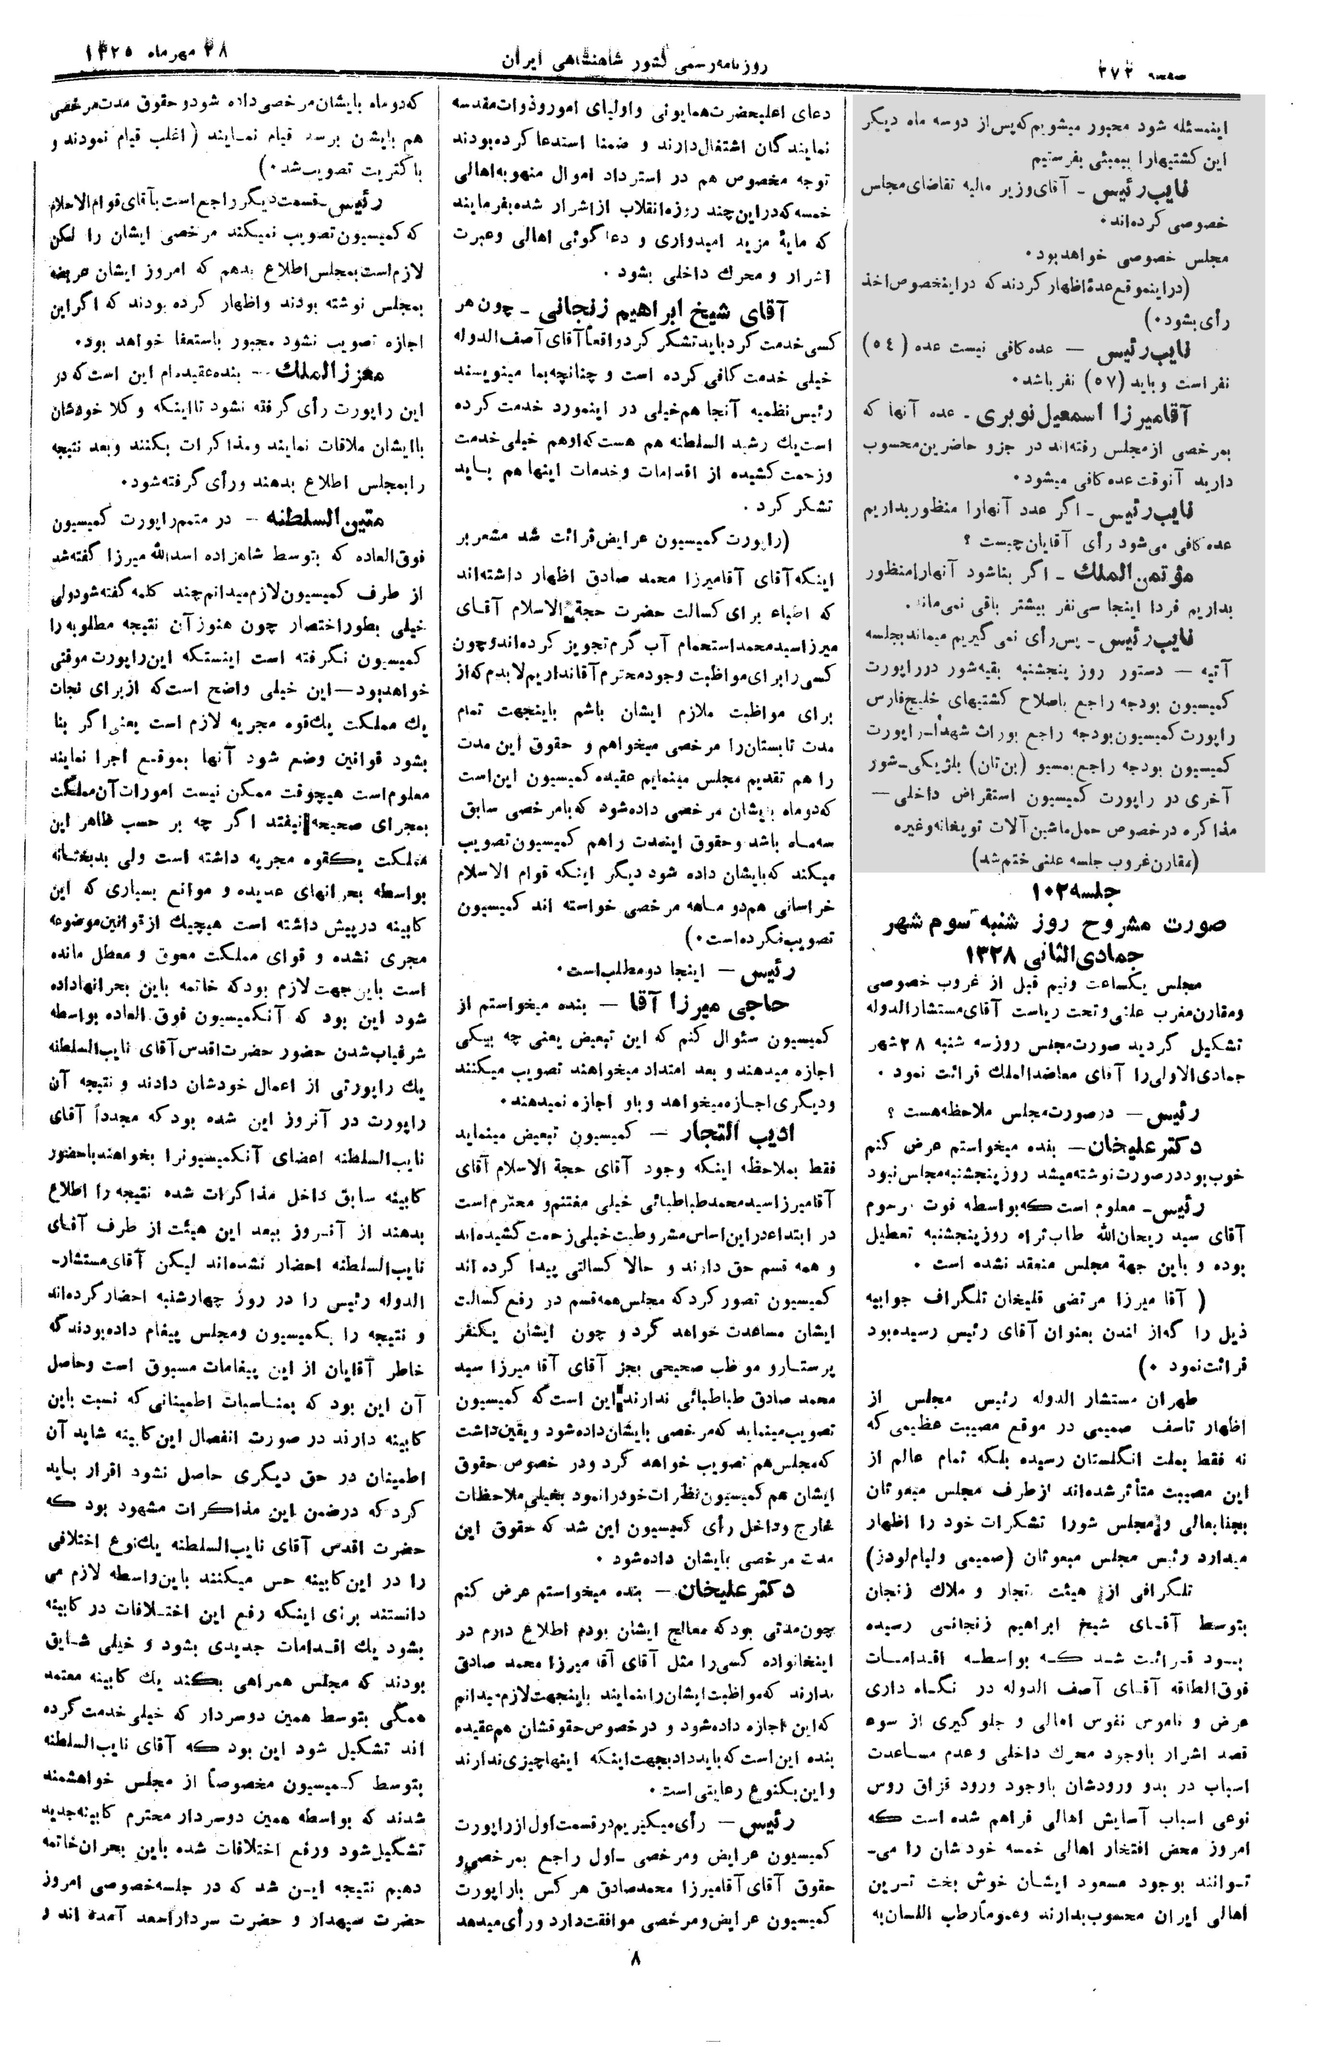 صفحه ۲۷۲
روزنامه رسمی کشور شاهنشاهی ایران
۲۸ مهرماه ۱۳۲۵
اینمسئله شود مجبور میشویم که پس از دوسه ماه دیگر
این کشتیهارا ببمبئی بفرستیم
نایب رئیس ـ آقای وزیر مالیه تقاضای مجلس
خصوصی کرده‌اند۰
مجلس خصوصی خواهد بود۰
(دراینموقع عدهٔ اظهار کردند که دراینخصوص اخذ
رأی بشود۰)
نایب رئیس — عده کافی نیست عده (٥٤)
نفر است و باید (٥٧) نفر باشد۰
آقامیرزا اسمعیل نوبری ـ عده آنها که
بمرخصی از مجلس رفته‌اند در جزو حاضرین محسوب
دارید آنوقت عده کافی میشود۰
نایب رئیس ـ اگر عدد آنهارا منظور بداریم
عده کافی می‌شود رأی آقایان چیست ؟
مؤتمن الملك ـ اگر بناشود آنهارا منظور
بداریم فردا اینجا سی نفر بیشتر باقی نمی‌ماند.
نایب رئیس ـ پس رأی نمی گیریم میماند بجلسه
آتیه — دستور روز پنجشنبه بقیه شور در راپورت
کمیسیون بودجه راجع باصلاح کشتیهای خلیج فارس
راپورت کمیسیون بودجه راجع بوراث شهدا ـ راپورت
کمیسیون بودجه راجع بمسیو (بن‌تان) بلژیکی ـ شور
آخری در راپورت کمیسیون استقراض داخلی —
مذاکره در خصوص حمل ماشین آلات توپخانه وغیره
(مقارن غروب جلسه علنی ختم شد)
جلسه ۱۰۲
صورت مشروح روز شنبه سوم شهر
جمادی الثانی ۱۳۲۸
مجلس یکساعت ونیم قبل از غروب خصوصی
ومقارن مغرب علنی وتحت ریاست آقای مستشار الدوله
تشکیل گردید صورت مجلس روز سه شنبه ۲۸ شهر
جمادی الاولی را آقای معاضد الملك قرائت نمود ۰
رئیس — در صورت مجلس ملاحظه هست ؟
دکتر علیخان — بنده میخواستم عرض کنم
خوب بود در صورت نوشته میشد روز پنجشنبه مجلس نبود
رئیس ـ معلوم است که بواسطه فوت مرحوم
آقای سید ریحان‌الله طاب‌ثراه روز پنجشنبه تعطیل
بوده و باین جهة مجلس منعقد نشده است ۰
( آقا میرزا مرتضی قلیخان تلگراف جوابیه
ذیل را که از لندن بعنوان آقای رئیس رسیده بود
قرائت نمود ۰)
طهران مستشار الدوله رئیس مجلس از
اظهار تاسف صمیمی در موقع مصیبت عظیمی که
نه فقط بملت انگلستان رسیده بلکه تمام عالم از
این مصیبت متأثر شده‌اند از طرف مجلس مبعوثان
بجنابعالی و مجلس شورا تشکرات خود را اظهار
میدارد رئیس مجلس مبعوثان (صمیمی ولیام لودز)
تلگرافی از هیئت تجار و ملاك زنجان
بتوسط آقای شیخ ابراهیم زنجانی رسیده
بود قرائت شد که بواسطه اقدامات
فوق الطاقه آقای آصف الدوله در نگاه داری
عرض و ناموس نفوس اهالی و جلو گیری از سوء
قصد اشرار باوجود محرك داخلی وعدم مساعدت
اسباب در بدو ورودشان باوجود ورود قزاق روس
نوعی اسباب آسایش اهالی فراهم شده است که
امروز محض افتخار اهالی خمسه خودشان را می‌ـ
توانند بوجود مسعود ایشان خوش بخت ترین
اهالی ایران محسوب بدارند وعموماً رطب اللسان به
دعای اعلیحضرت همایونی و اولیای امور و ذوات مقدسه
نمایندگان اشتغال دارند و ضمنا استدعا کرده بودند
توجه مخصوص هم در استرداد اموال منهوبه اهالی
خمسه که در این چند روزه انقلاب از اشرار شده بفرمایند
که مایهٔ مزید امیدواری و دعا گوئی اهالی وعبرت
اشرار و محرك داخلی بشود ۰
آقای شیخ ابراهیم زنجانی ـ چون هر
کسی خدمت کرد باید تشکر کرد واقعاً آقای آصف الدوله
خیلی خدمت کافی کرده است و چنانچه بما مینویسند
رئیس نظمیه آنجا هم خیلی در اینمورد خدمت کرده
است یك رشید السلطنه هم هست که او هم خیلی خدمت
وزحمت کشیده از اقدامات وخدمات اینها هم باید
تشکر کرد ۰
(راپورت کمیسیون عرایض قرائت شد مشعر بر
اینکه آقای آقامیرزا محمد صادق اظهار داشته‌اند
که اطباء برای کسالت حضرت حجة الاسلام آقای
میرزا سید محمد استحمام آب گرم تجویز کرده‌اند و چون
کسی را برای مواظبت وجود محترم آقا نداریم لابدم که از
برای مواظبت ملازم ایشان باشم باینجهت تمام
مدت تابستان را مرخصی میخواهم و حقوق این مدت
را هم تقدیم مجلس مینمایم عقیده کمیسیون این است
که دو ماه بایشان مرخصی داده شود که با مرخصی سابق
سه ماه باشد وحقوق اینمدت راهم کمیسیون تصویب
میکند که بایشان داده شود دیگر اینکه قوام الاسلام
خراسانی هم دو ماهه مرخصی خواسته اند کمیسیون
تصویب نکرده است۰)
رئیس — اینجا دو مطلب است۰
حاجی میرزا آقا — بنده میخواستم از
کمیسیون سئوال کنم که این تبعیض یعنی چه بیکی
اجازه میدهند و بعد امتداد میخواهند تصویب میکنند
ودیگری اجازه میخواهد وباو اجازه نمیدهند۰
ادیب التجار — کمیسیون تبعیض مینماید
فقط بملاحظه اینکه وجود آقای حجة الاسلام آقای
آقامیرزا سید محمد طباطبائی خیلی مغتنم و محترم است
در ابتداء در این اساس مشروطیت خیلی زحمت کشیده‌اند
و همه قسم حق دارند و حالا کسالتی پیدا کرده اند
کمیسیون تصور کرد که مجلس همه قسم در رفع کسالت
ایشان مساعدت خواهد کرد و چون ایشان یکنفر
پرستار و مواظب صحیحی بجز آقای آقا میرزا سید
محمد صادق طباطبائی ندارند این است که کمیسیون
تصویب مینماید که مرخصی بایشان داده شود ویقین داشت
که مجلس هم تصویب خواهد کرد ودر خصوص حقوق
ایشان هم کمیسیون نظرات خود را نمود بخیلی ملاحظات
خارج وداخل رأی کمیسیون این شد که حقوق این
مدت مرخصی بایشان داده شود ۰
دکتر علیخان — بنده میخواستم عرض کنم
چون مدتی بود که معالج ایشان بودم اطلاع دارم در
اینخانواده کسی را مثل آقای آقا میرزا محمد صادق
ندارند که مواظبت ایشان را بنمایند باینجهت لازم میدانم
که این اجازه داده شود و در خصوص حقوقشان هم عقیده
بنده این است که باید داد بجهت اینکه اینها چیزی ندارند
واین یکنوع رعایتی است۰
رئیس — رأی میگیریم در قسمت اول از راپورت
کمیسیون عرایض ومرخصی ـ اول راجع بمرخصی و
حقوق آقای آقامیرزا محمد صادق هر کس با راپورت
کمیسیون عرایض و مرخصی موافقت دارد ورأی میدهد
که دو ماه بایشان مرخصی داده شود و حقوق مدت مرخصی
هم بایشان برسد قیام نمایند (اغلب قیام نمودند و
باکثریت تصویب شد۰)
رئیس ـ قسمت دیگر راجع است بآقای قوام الاسلام
که کمیسیون تصویب نمیکند مرخصی ایشان را لکن
لازم است بمجلس اطلاع بدهم که امروز ایشان عریضه
بمجلس نوشته بودند و اظهار کرده بودند که اگر این
اجازه تصویب نشود مجبور باستعفا خواهد بود۰
معزز الملك — بنده عقیده‌ام این است که در
این راپورت رأی گرفته نشود تا اینکه و کلا خودشان
با ایشان ملاقات نمایند ومذاکرات بکنند وبعد نتیجه
را بمجلس اطلاع بدهند ورأی گرفته شود۰
متین السلطنه — در متمم راپورت کمیسیون
فوق العاده که بتوسط شاهزاده اسدالله میرزا گفته شد
از طرف کمیسیون لازم میدانم چند کلمه گفته شود ولی
خیلی بطور اختصار چون هنوز آن نتیجه مطلوبه را
کمیسیون نگرفته است اینستکه این راپورت موقتی
خواهد بود — این خیلی واضح است که از برای نجات
یك مملکت یك قوه مجریه لازم است یعنی اگر بنا
بشود قوانین وضع شود آنها بموقع اجرا نمایند
معلوم است هیچوقت ممکن نیست امورات آن مملکت
بمجرای صحیحه نیفتد اگر چه بر حسب ظاهر این
مملکت یک قوه مجریه داشته است ولی بدبختانه
بواسطه بحرانهای عدیده و موانع بسیاری که این
کابینه در پیش داشته است هیچیك از قوانین موضوعه
مجری نشده و قوای مملکت معوق و معطل مانده
است باین جهت لازم بود که خاتمه باین بحرانها داده
شود این بود که آنکمیسیون فوق العاده بواسطه
شرفیاب شدن حضور حضرت اقدس آقای نایب السلطنه
یك راپورتی از اعمال خودشان دادند و نتیجه آن
راپورت در آنروز این شده بود که مجدداً آقای
نایب السلطنه اعضای آنکمیسیونرا بخواهند باحضور
کابینه سابق داخل مذاکرات شده نتیجه را اطلاع
بدهند از آنروز ببعد این هیئت از طرف آقای
نایب السلطنه احضار نشده‌اند لیکن آقای مستشارـ
الدوله رئیس را در روز چهارشنبه احضار کرده‌اند
و نتیجه را بکمیسیون ومجلس پیغام داده بودند که
خاطر آقایان از این پیغامات مسبوق است وحاصل
آن این بود که بمناسبات اطمینانی که نسبت باین
کابینه دارند در صورت انفصال این کابینه شاید آن
اطمینان در حق دیگری حاصل نشود اقرار باید
کرد که در ضمن این مذاکرات مشهود بود که
حضرت اقدس آقای نایب السلطنه یك نوع اختلافی
را در این کابینه حس میکنند باین واسطه لازم می
دانستند برای اینکه رفع این اختلافات در کابینه
بشود یك اقدامات جدیدی بشود و خیلی شایق
بودند که مجلس همراهی بکند یك کابینه معتمد
همگی بتوسط همین دو سردار که خیلی خدمت کرده
اند تشکیل شود این بود که آقای نایب السلطنه
بتوسط کمیسیون مخصوصاً از مجلس خواهشمند
شدند که بواسطه همین دو سردار محترم کابینه جدید
تشکیل شود ورفع اختلافات شده باین بحران خاتمه
دهیم نتیجه این شد که در جلسه خصوصی امروز
حضرت سپهدار و حضرت سردار اسعد آمده اند و
۸